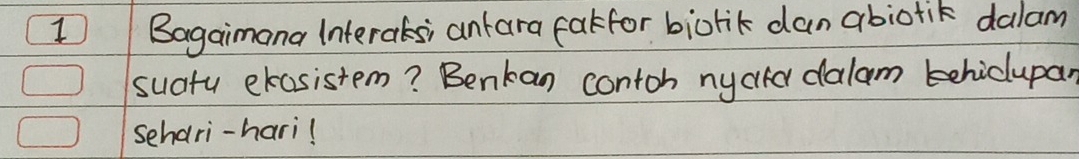 1 Bagaimana Interaksi antara faktor biotik dan abiotik dalam
suatu ekosistem? Berikan contoh nyata dalam kehidupan
sehari-hari!